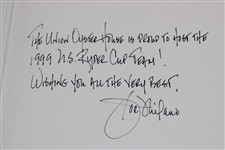 The Union Oyster House is proud to host the
1999 U.S. Ryder Cup Team!
Wishing you all the very best.